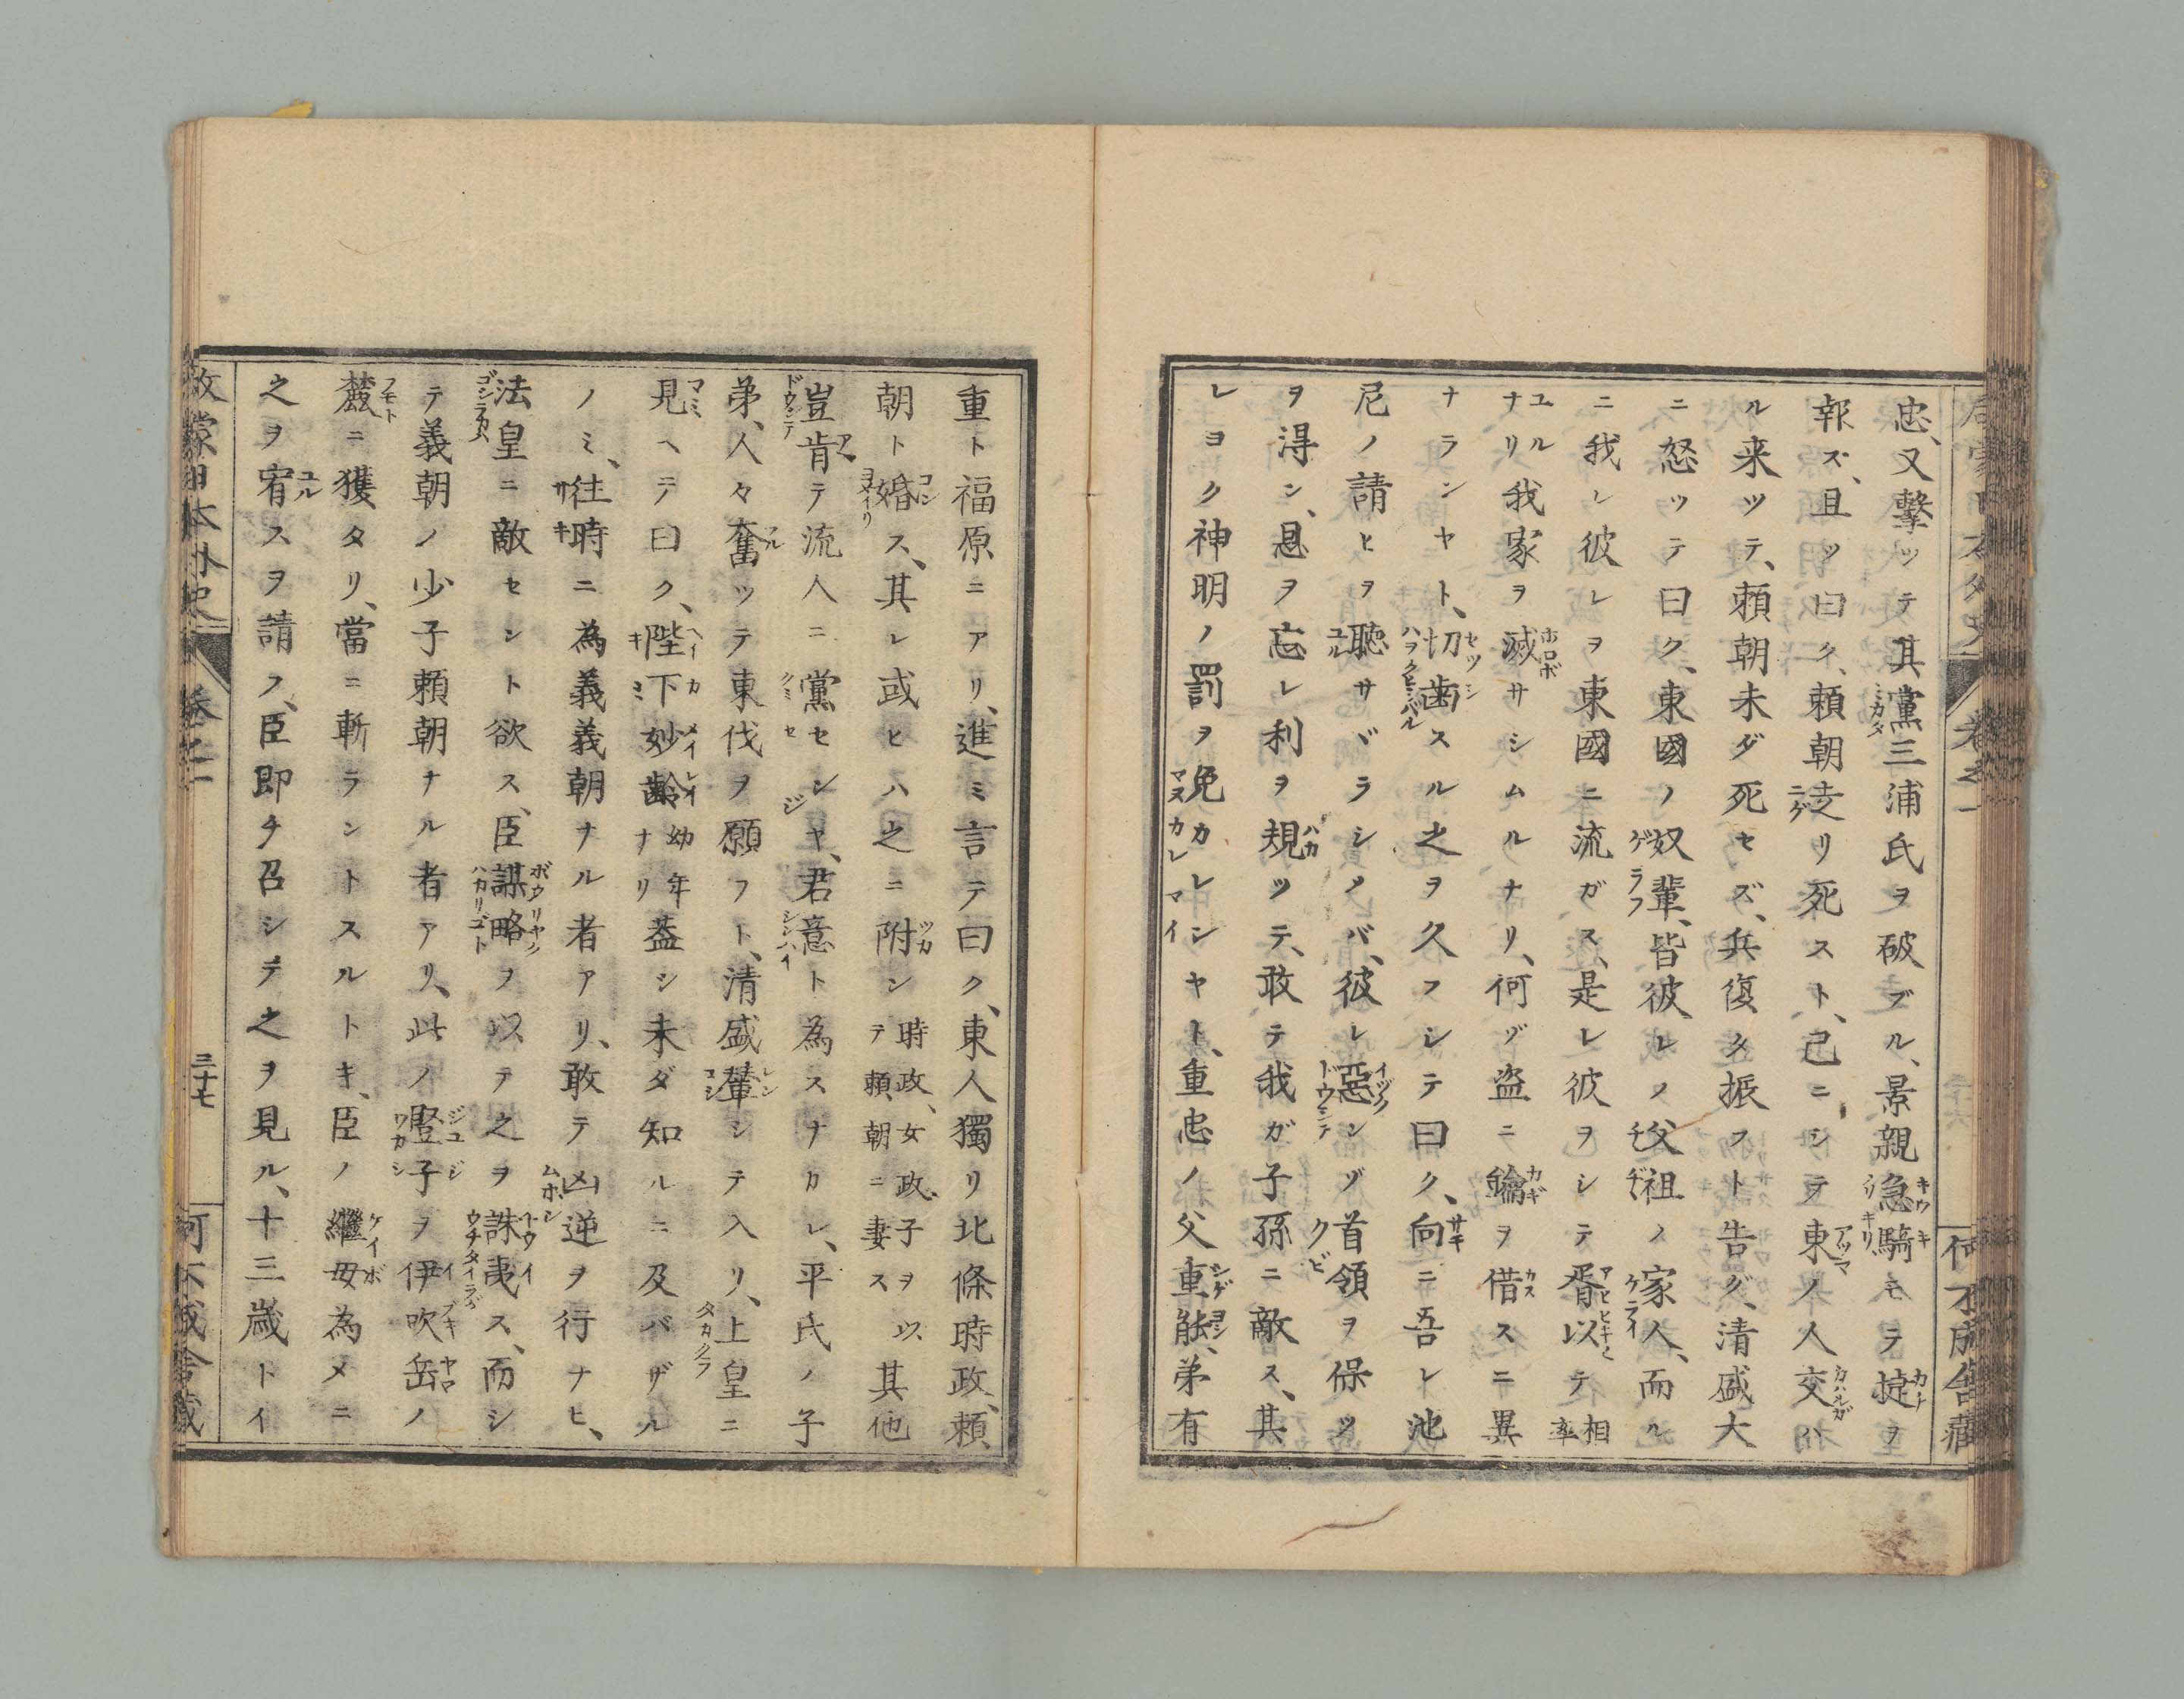 忠、又擊ッテ其黨三浦氏ヲ破ブル、景親急騎モテ捷ヲ
報ズ、且ツ曰ク、頼朝走リ死スト、已ニシテ東ノ人交ハ
ル来ッテ、頼朝未ダ死セズ、兵復タ振フト告グ、清盛大
ニ怒ッテ曰ク、東國ノ奴輩、皆彼レノ父祖ノ家人、而ル
ニ我レ彼レヲ東國ニ流ガス、是レ彼ヲシテ胥以テ相率
ナリ我家ヲ滅サシムルナリ、何ゾ盗ニ鑰ヲ借スニ異
ナランヤト、切歯スル之ヲ久フシテ曰ク、向ニ吾レ池
尼ノ請ヒヲ聴サヾラシメバ、彼レ惡ンゾ首領ヲ保ツ
ヲ得ン、恩ヲ忘レ利ヲ規ツテ、敢テ我ガ子孫ニ敵ス、其
レヨク神明ノ罰ヲ免カレンヤト、重忠ノ父重能、弟有
重ト福原ニアリ、進ミ言テ曰ク、東人獨リ北條時政、頼
朝ト婚ス、其レ或ヒハ之ニ附ン時政、女政子ヲ以テ頼朝ニ妻ス其他
豈肯テ流人ニ黨センヤ、君意ト為スナカレ、平氏ノ子
弟、人々奮ッテ東伐ヲ願フト、清盛輦シテ入リ、上皇ニ
見ヘテ曰ク、陛下妙齢ナリ幼年蓋シ未ダ知ルニ及バザル
ノミ、往時ニ為義義朝ナル者アリ、敢テ凶逆ヲ行ナヒ、
法皇ニ敵セント欲ス、臣謀略ヲ以テ之ヲ誅夷ス、而シ
テ義朝ノ少子頼朝ナル者アリ、此ノ豎子ヲ伊吹岳ノ
麓ニ獲タリ、當ニ斬ラントスルトキ、臣ノ繼母為メニ
之ヲ宥スヲ請フ、臣即チ召シテ之ヲ見ル、十三歳トイ
啟蒙日本外史 巻之一 三十七 何不成舎蔵